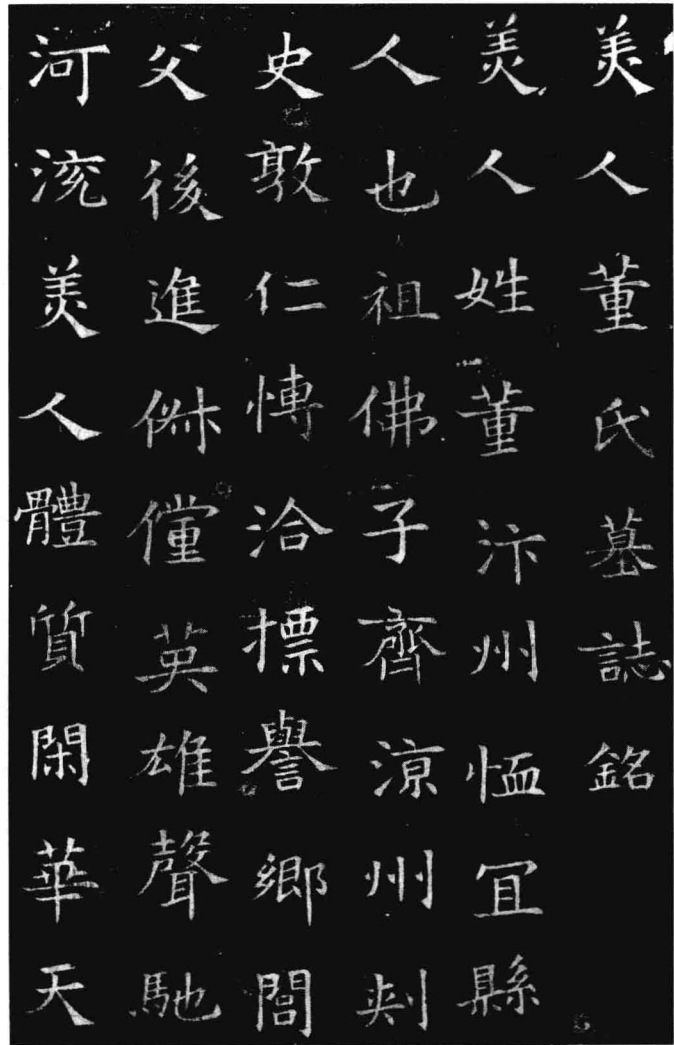 美人董氏墓誌銘
美人姓董汴州恤冝縣
人也祖佛子齊涼州刾
史敦仁愽洽摽譽鄉閭
父後進俶儻英雄聲馳
河渷美人體質閑華天